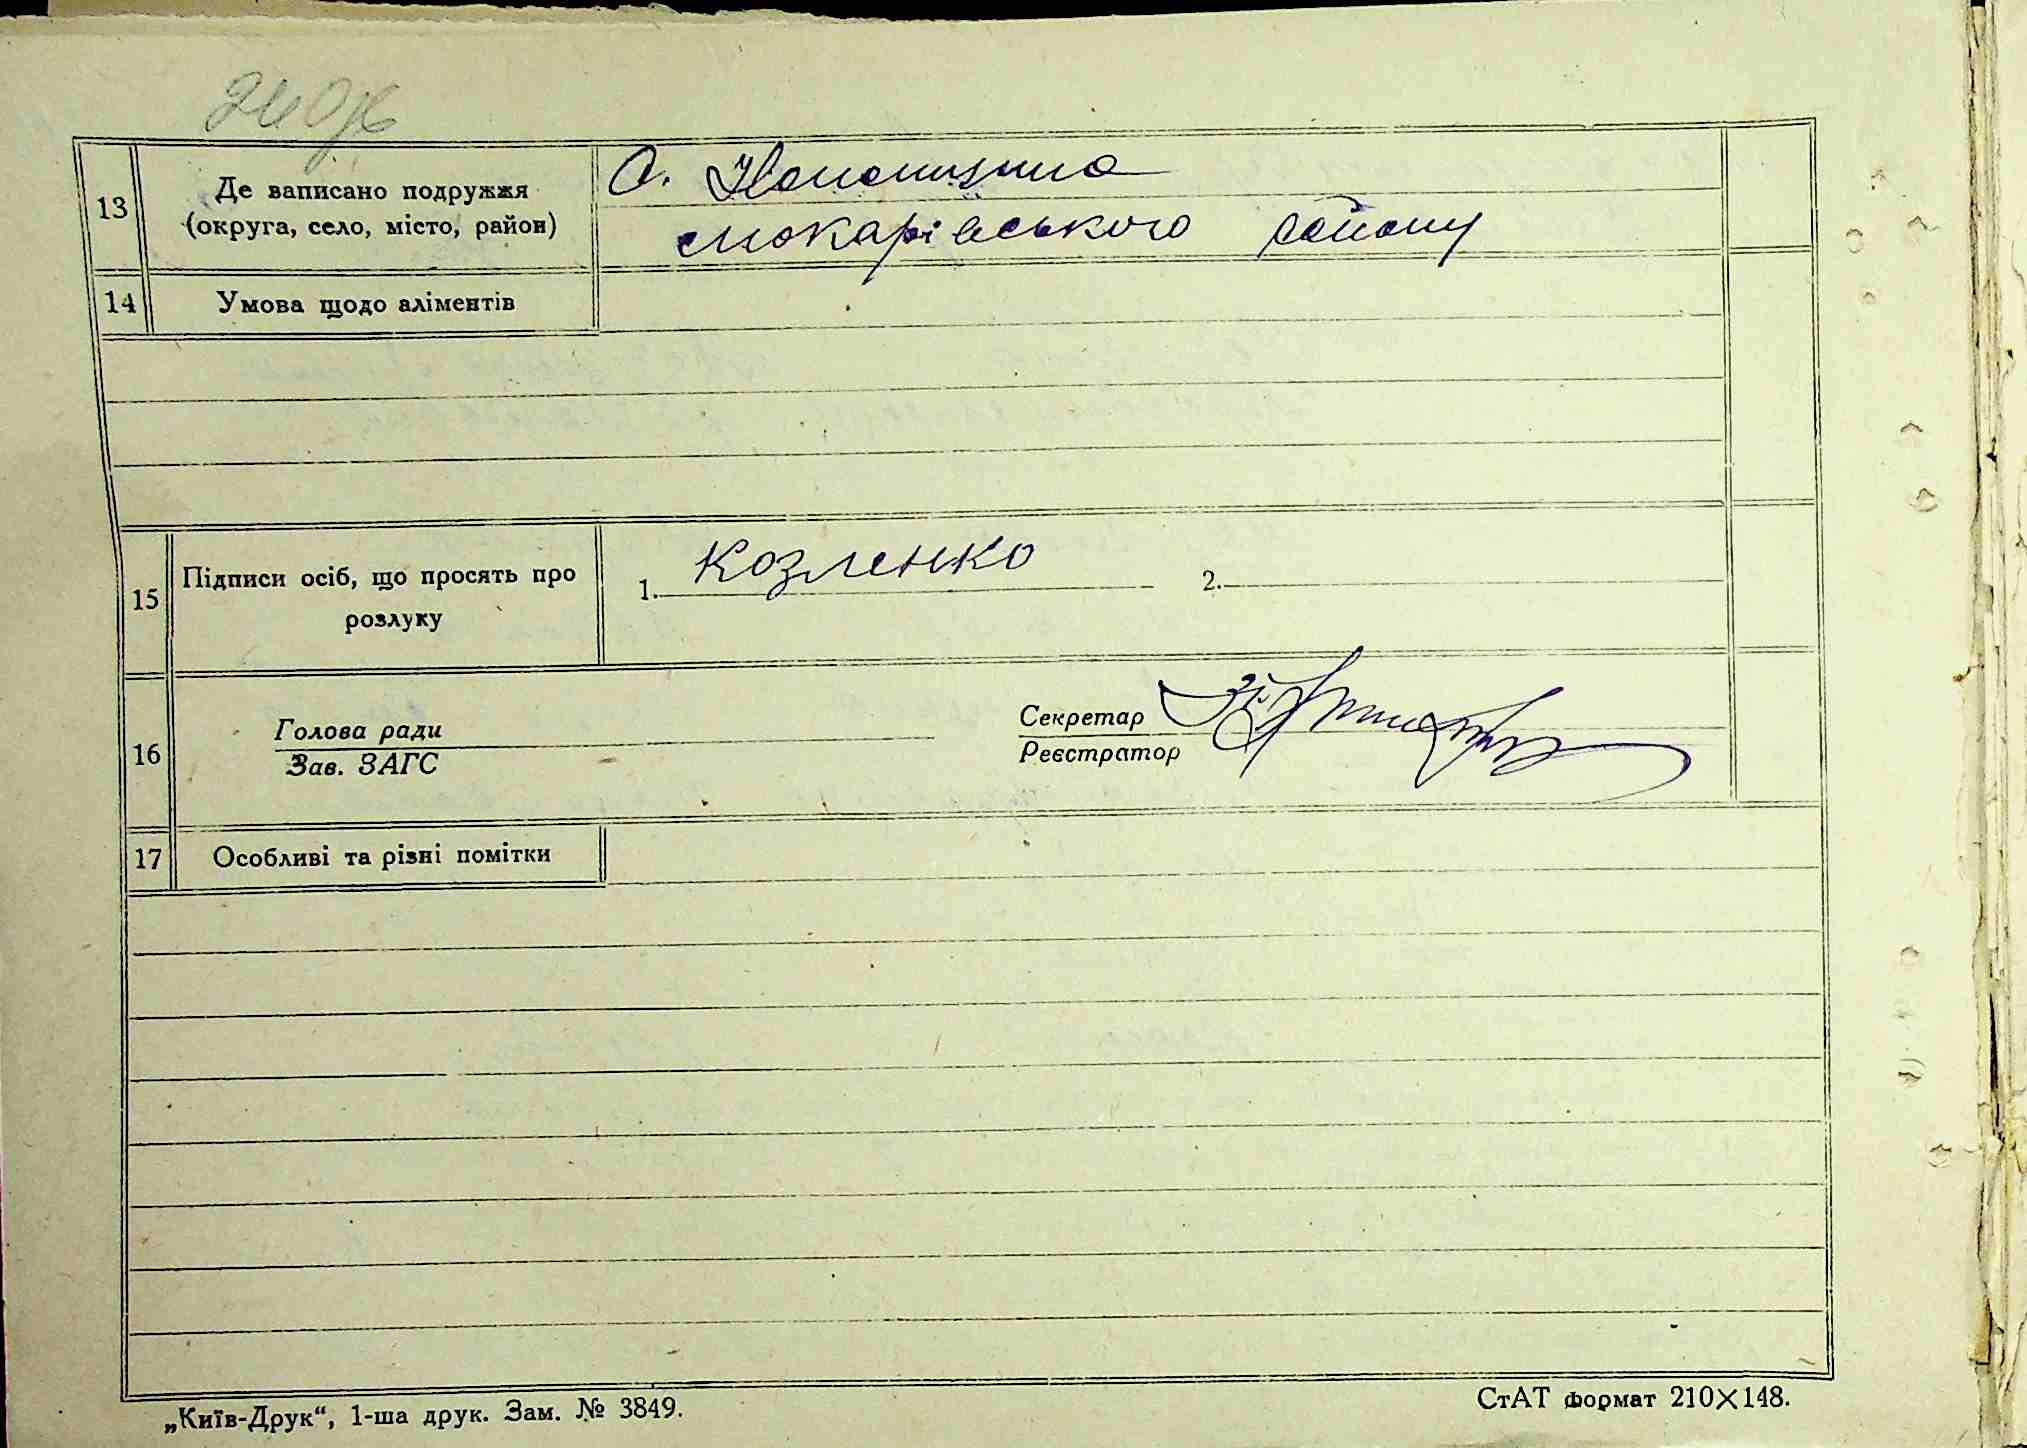 13
Де записано подружжя
(округа, село, місто, район)
с.
макарівського району
14
Умова щодо аліментів
15
Підписи осіб, що просять про
розлуку
1. Козленко
2.
16
Голова ради
Зав. ЗАГС
Секретар
Реєстратор
17
Особливі та різні помітки
„Київ-Друк“, 1-ша друк. Зам. № 3849.
СтАТ формат 210×148.